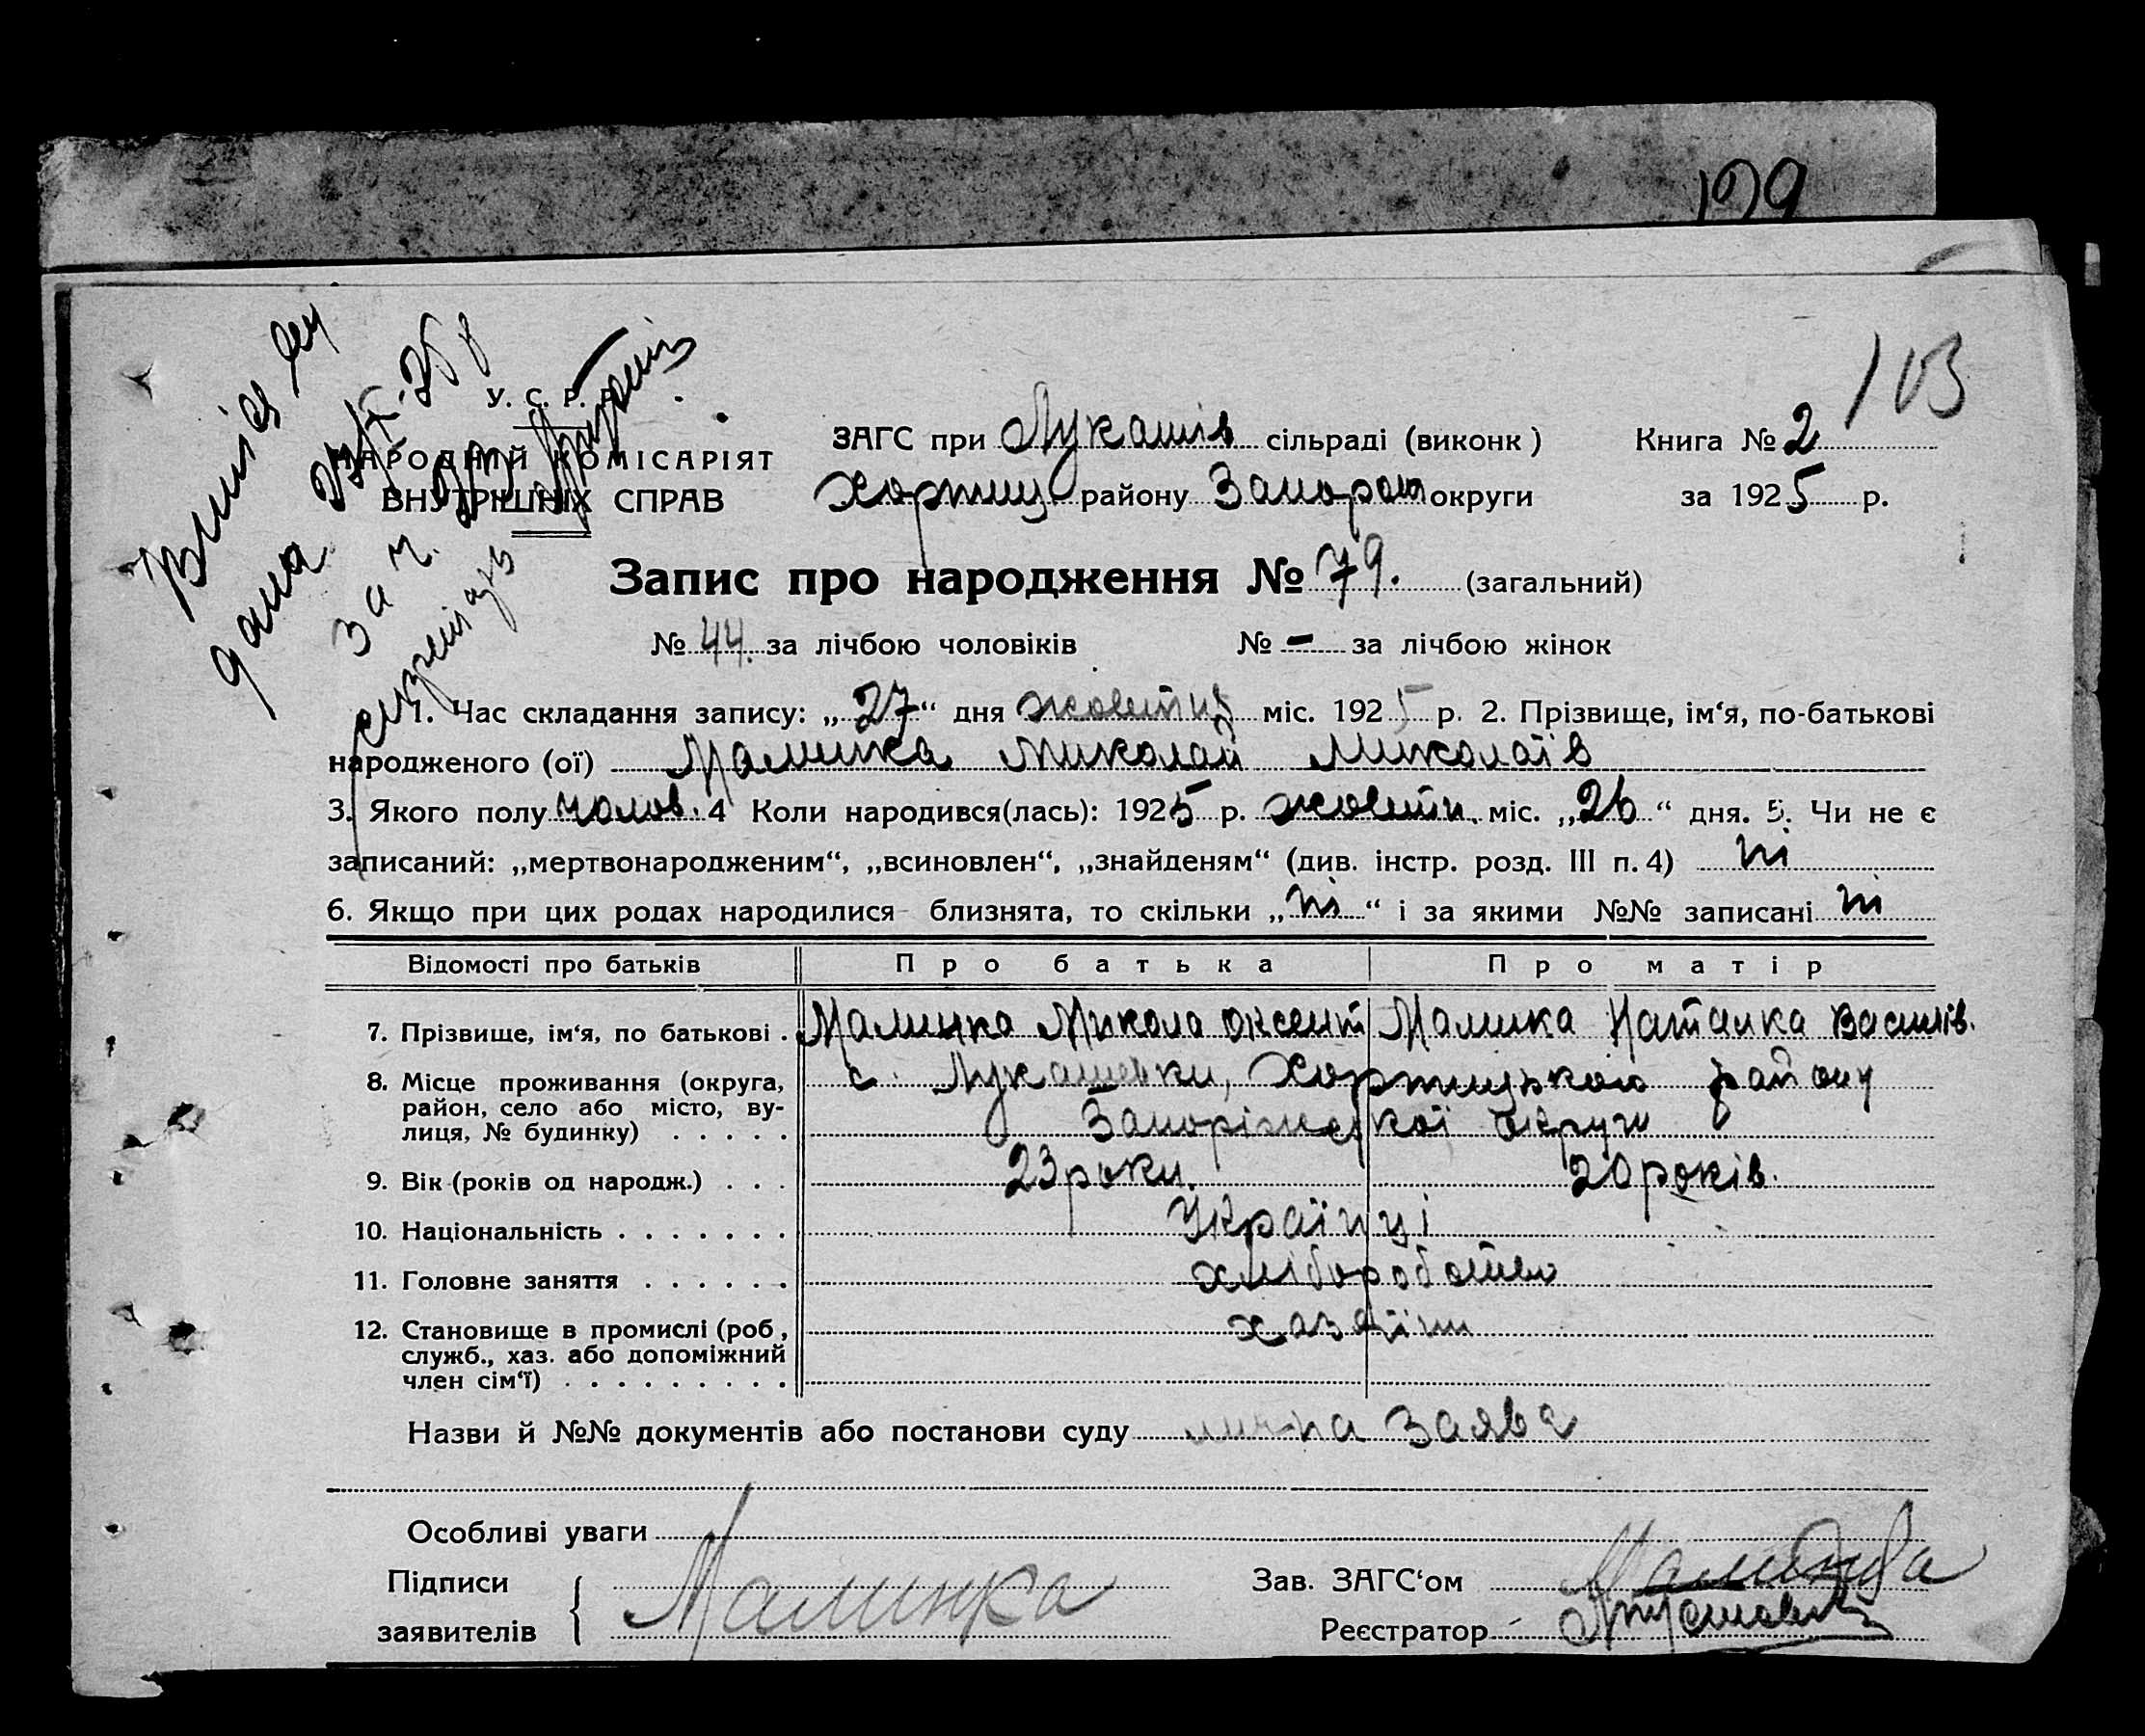 109
103
Випис
дана
зам.
У. С. Р. Р.
НАРОДНИЙ КОМІСАРІЯТ
ВНУТРІШНІХ СПРАВ
ЗАГС при Лукашів сільраді (виконк) Книга № 2
Хортиц району Запорож округи за 1925 р.
Запис про народження № 79. (загальний)
№ 44. за лічбою чоловіків № - за лічбою жінок
1. Час складання запису: „27“ дня жовтня міс. 1925 р. 2. Прізвище, ім‘я, по-батькові
народженого (ої) Малинка Миколай Миколаїв
3. Якого полу чолов. 4 Коли народився(лась): 1925 р. жовтн. міс. „26“ дня. 5. Чи не є
записаний: „мертвонародженим“, „всиновлен“, „знайденям“ (див. інстр. розд. III п. 4) ні
6. Якщо при цих родах народилися близнята, то скільки „ні“ і за якими №№ записані ні
Відомості про батьків Про батька Про матір
7. Прізвище, ім‘я, по батькові . Малинка Микола Оксент Малинка Наталка Василів.
8. Місце проживання (округа, район, село або місто, ву-
лиця, № будинку) . . . . . с. Лукашевки, Хортицького району
Запоріжської округи
9. Вік (років од народж.) . . . 23 роки. 20 років.
10. Національність . . . . . . . Українці
11. Головне заняття . . . . . . хліборобство
12. Становище в промислі (роб., служб., хаз. або допоміжний
член сім‘ї) . . . . . . . . . хазяїни
Назви й №№ документів або постанови суду лична заява
Особливі уваги
Підписи
заявителів Малинка
Зав. ЗАГС‘ом
Реєстратор